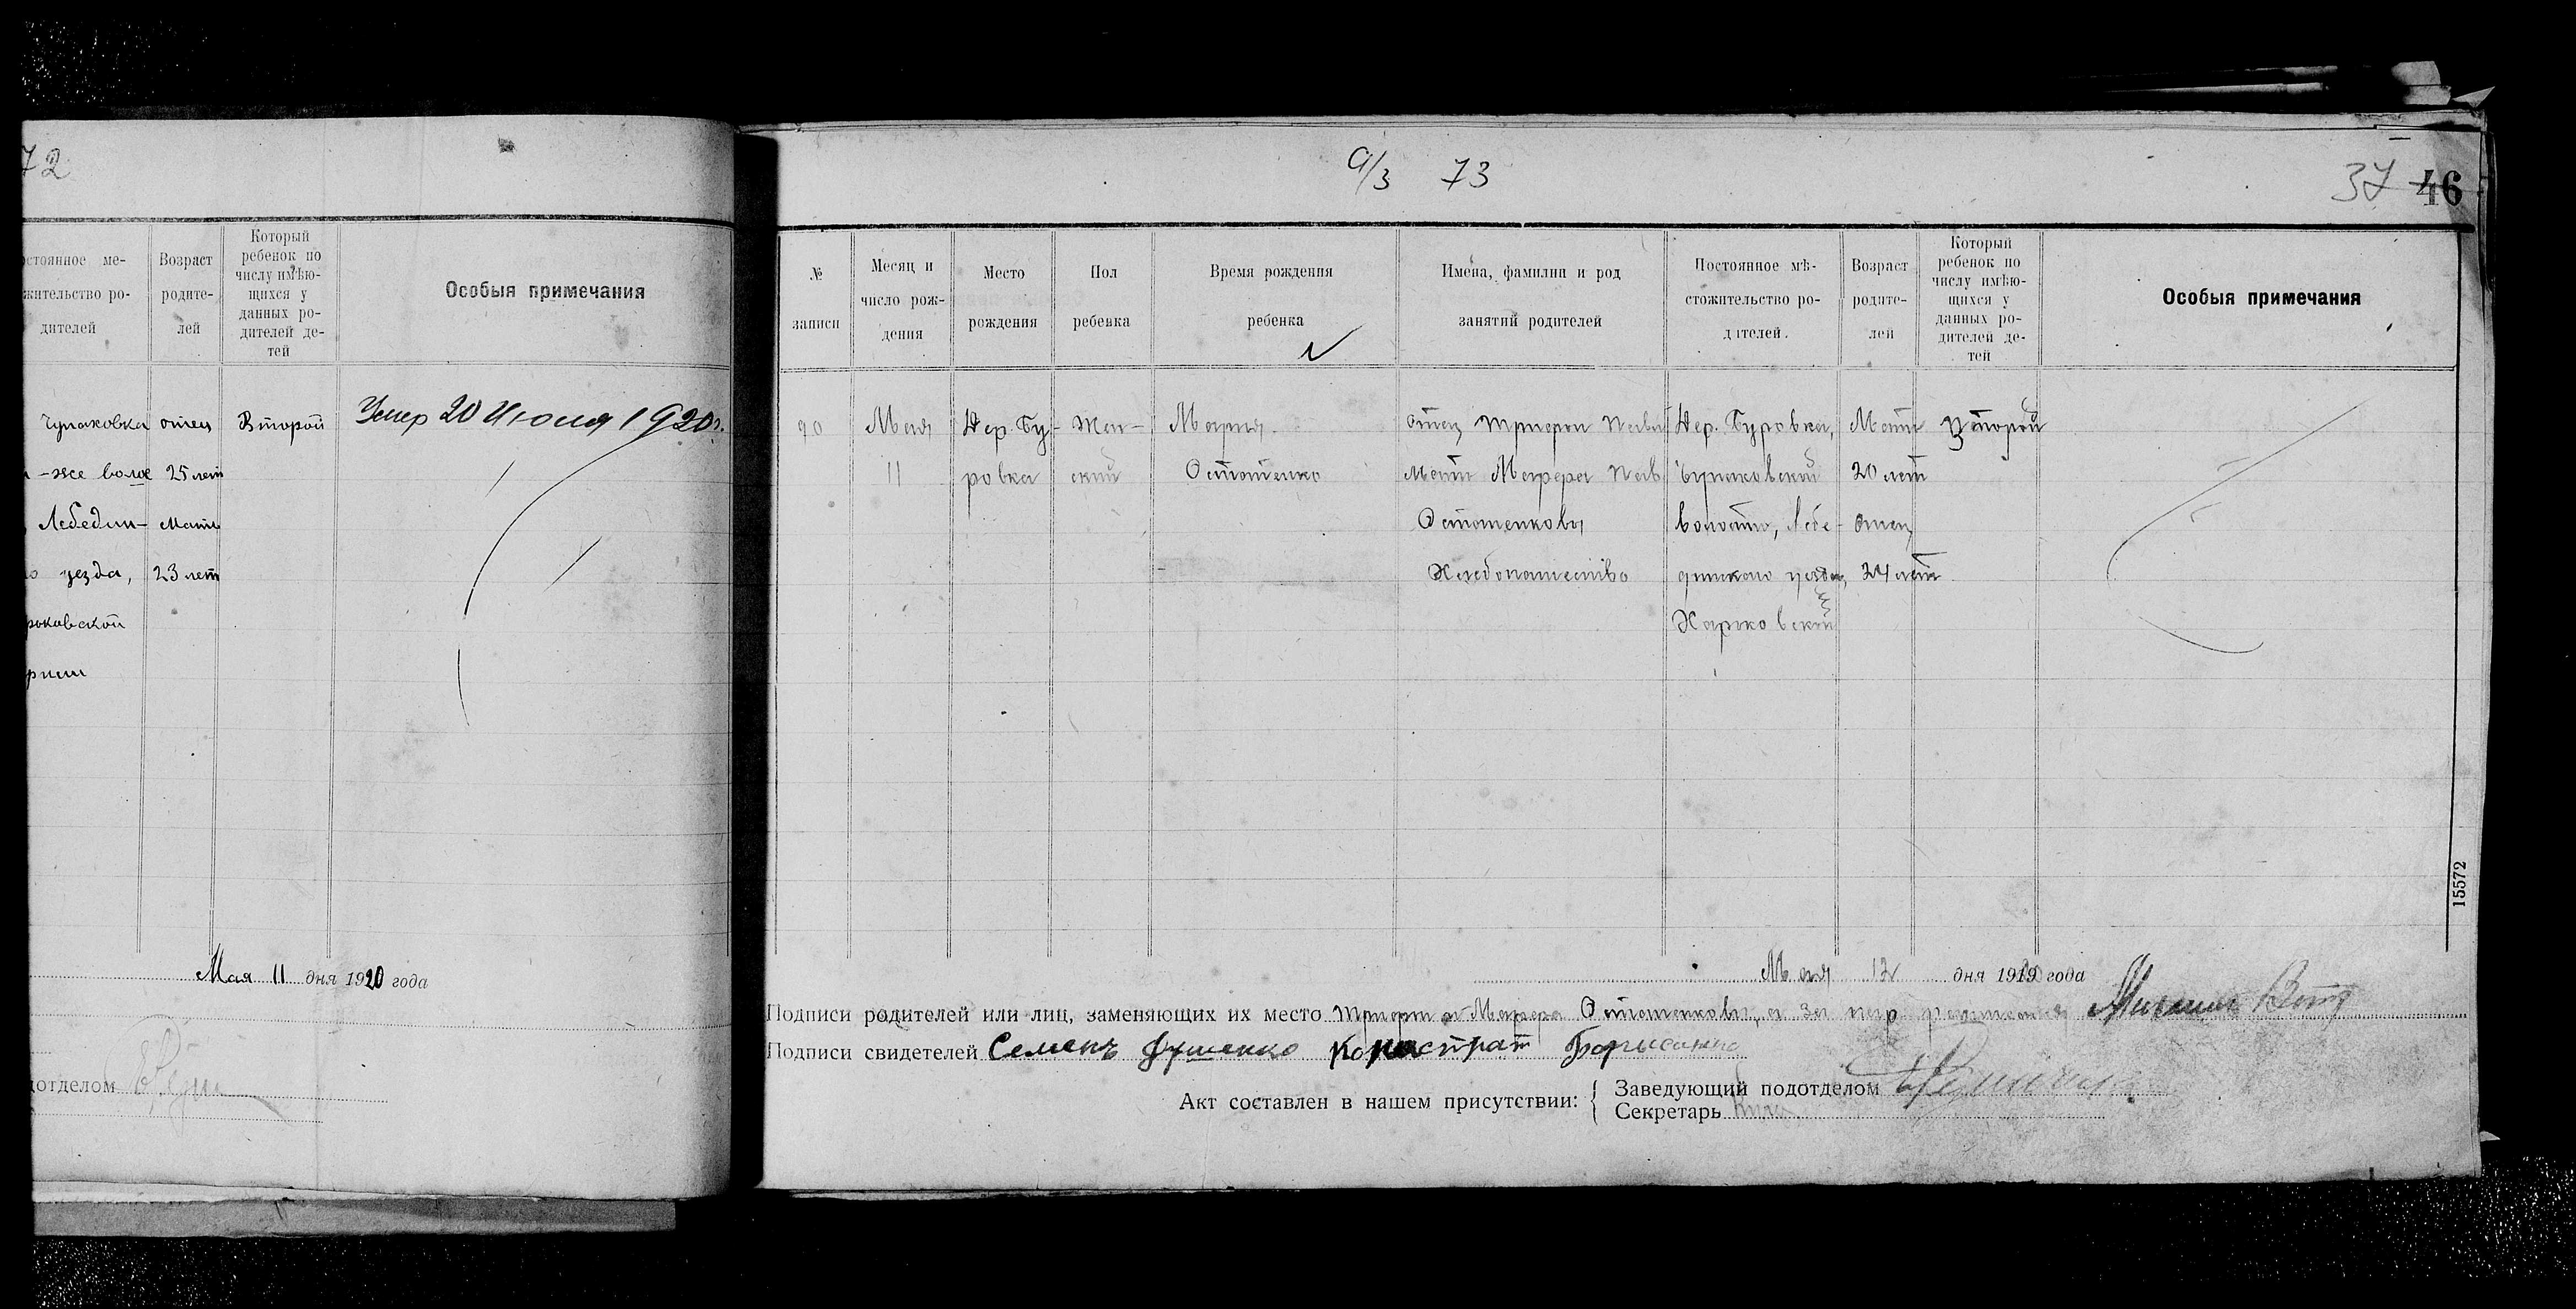 72
стоянное ме-
жительство ро-
дителей
Возраст
родите-
лей
Который
ребенок по
числу имѣю-
щихся у
данных ро-
дителей де-
тей
Особыя примечания
Чупаховка
-же воло
Лебедин-
уезда,
рьковской
отец
25 лет
Мать
23 лет
Второй
Умер 20 Июля 1920г.
Мая 11 дня 1920 года
отделом
9/3 73
37 46
№
записи
Месяц и
число рож-
дения
Место
рождения
Пол
ребенка
Время рождения
ребенка
Имена, фамилии и род
занятий родителей
Постоянное мѣ-
стожительство ро-
дителей.
Возраст
родите-
лей
Который
ребенок по
числу имѣю-
щихся у
данных ро-
дителей де-
тей
Особыя примечания
90
Мая
11
Дер. Бу-
ровка
Жен-
ский
Мария
Остотенко
Отец
Мать
Остотенковы
Хлебопашество
Дер. Буровка,
Чупаховской
волости, Лебе-
динского уезда,
Харьковской
Мать
20 лет
Отец
24 лет
Второй
15572
Мая 12 дня 1920 года
Подписи родителей или лиц, заменяющих их место
Подписи свидетелей Семенъ
Акт составлен в нашем присутствии:
Заведующий подотделом
Секретарь